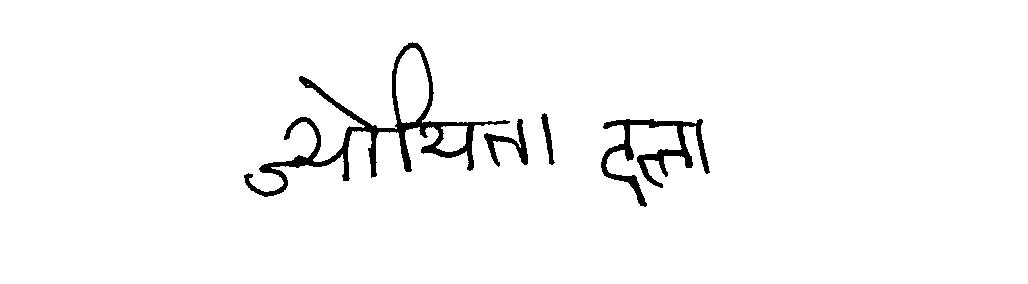 ज्योयिता दत्ता